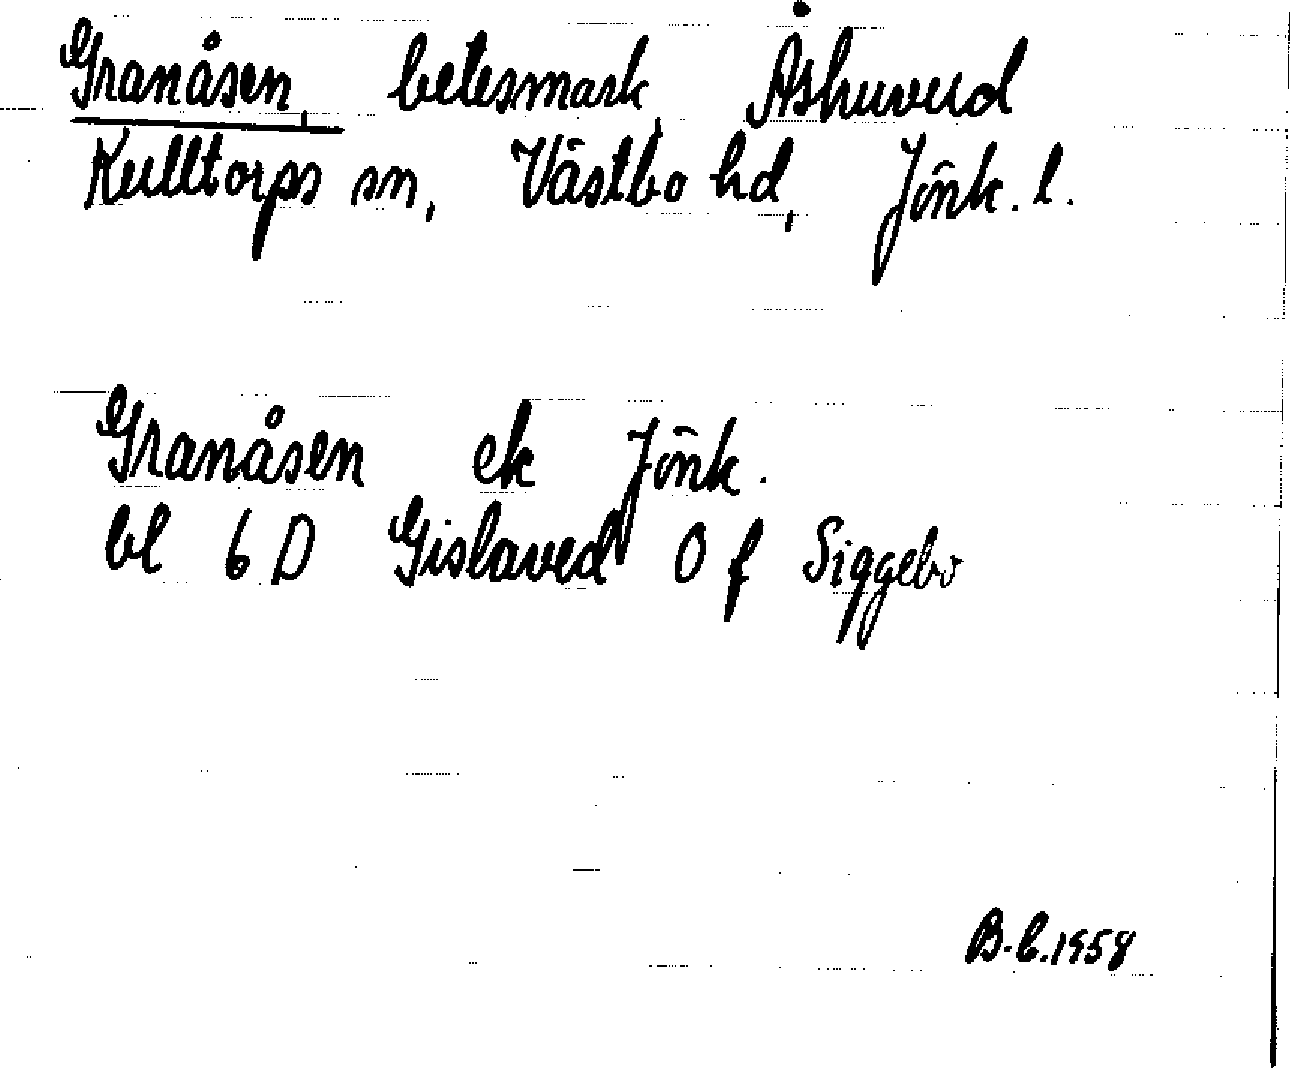 Granåsen, betesmark, Åshuvud
Kulltorps sn, Västbo hd, Jönk. l.
Granåsen ek Jönk.
bl 6 D Gislaved O f Siggebo
B.L. 1958